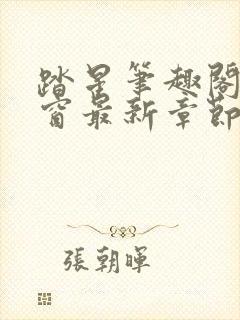 踏星筆趣閣
窗最新章節
張朝暉